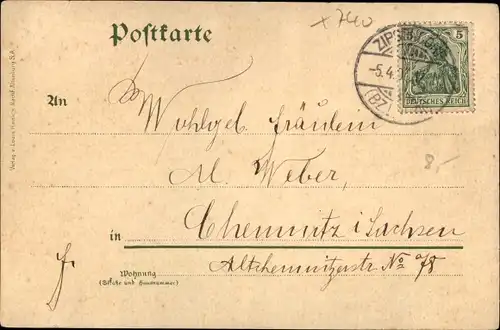 Postkarte
5
DEUTSCHES REICH
-5.4.
An
Wohlgel. Fräulein
M. Weber,
in
Chemnitz i/Sachsen
Wohnung
(Straße und Hausnummer)
Altchemnitzerstr No 78
8,-